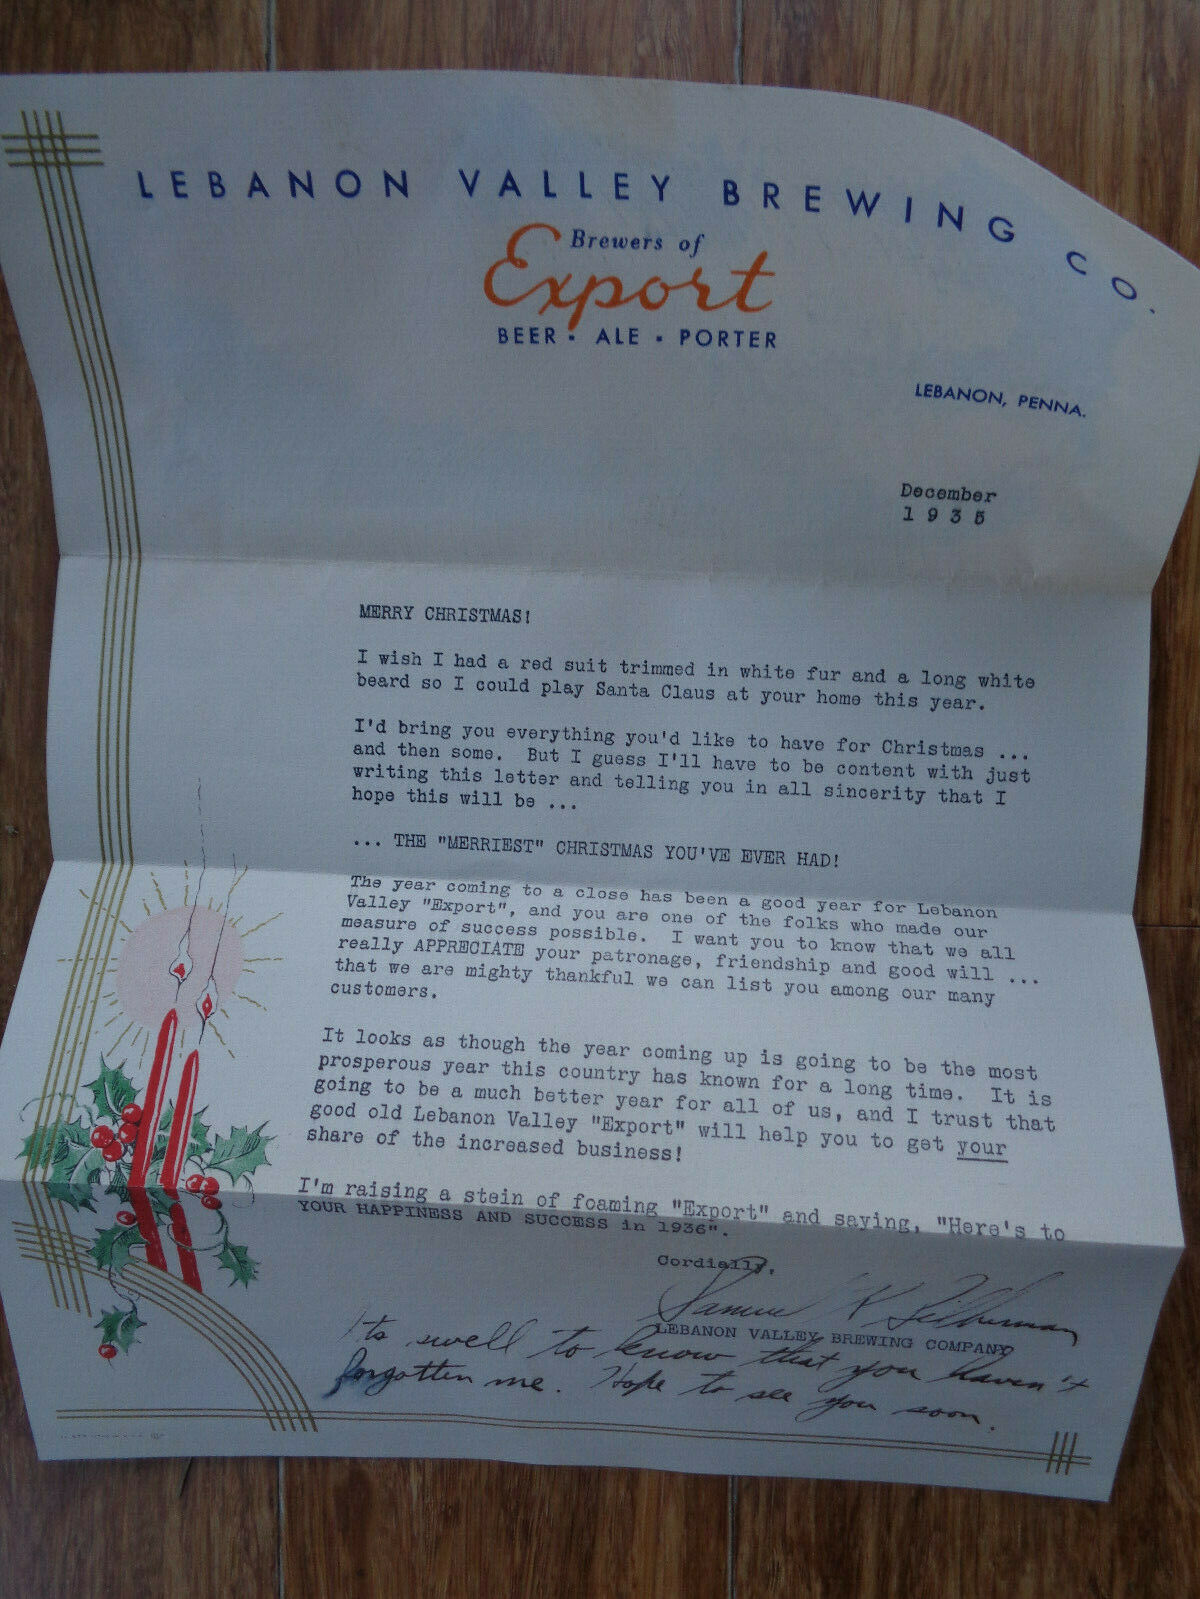 LEBANON VALLEY BREWING CO.
Brewers of
Export
BEER • ALE • PORTER
LEBANON, PENNA.
December
1 9 3 5
MERRY CHRISTMAS!
I wish I had a red suit trimmed in white fur and a long white
beard so I could play Santa Claus at your home this year.
I'd bring you everything you'd like to have for Christmas ...
and then some. But I guess I'll have to be content with just
writing this letter and telling you in all sincerity that I
hope this will be ...
... THE "MERRIEST" CHRISTMAS YOU'VE EVER HAD!
The year coming to a close has been a good year for Lebanon
Valley "Export", and you are one of the folks who made our
measure of success possible. I want you to know that we all
really APPRECIATE your patronage, friendship and good will ...
that we are mighty thankful we can list you among our many
customers.
It looks as though the year coming up is going to be the most
prosperous year this country has known for a long time. It is
going to be a much better year for all of us, and I trust that
good old Lebanon Valley "Export" will help you to get your
share of the increased business!
I'm raising a stein of foaming "Export" and saying, "Here's to
YOUR HAPPINESS AND SUCCESS in 1936".
Cordially,
Samuel K Silberman
LEBANON VALLEY BREWING COMPANY
Its swell to know that you haven't
forgotten me. Hope to see you soon.